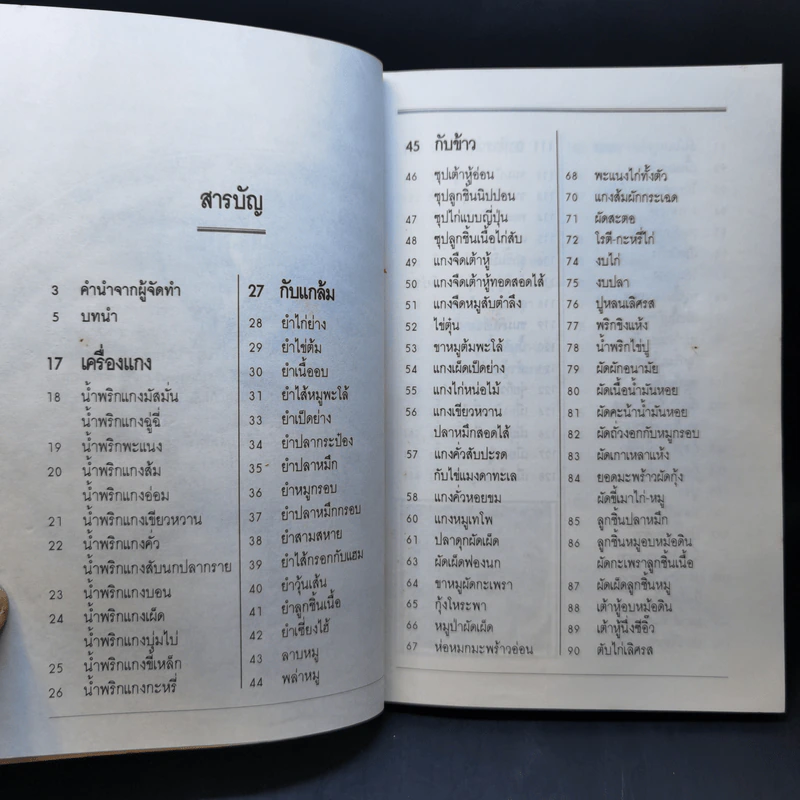 สารบัญ
3 คำนำจากผู้จัดทำ
5 บทนำ
17 เครื่องแกง
18 น้ำพริกแกงมัสมั่น
น้ำพริกแกงฉู่ฉี่
19 น้ำพริกพะแนง
20 น้ำพริกแกงส้ม
น้ำพริกแกงอ่อม
21 น้ำพริกแกงเขียวหวาน
22 น้ำพริกแกงคั่ว
น้ำพริกแกงสับนกปลากราย
23 น้ำพริกแกงบอน
24 น้ำพริกแกงเผ็ด
น้ำพริกแกงบุ่มไบ่
25 น้ำพริกแกงขี้เหล็ก
26 น้ำพริกแกงกะหรี่
27 กับแกล้ม
28 ยำไก่ย่าง
29 ยำไข่ต้ม
30 ยำเนื้ออบ
31 ยำไส้หมูพะโล้
33 ยำเป็ดย่าง
34 ยำปลากระป๋อง
35 ยำปลาหมึก
36 ยำหมูกรอบ
37 ยำปลาหมึกกรอบ
38 ยำสามสหาย
39 ยำไส้กรอกกับแฮม
40 ยำวุ้นเส้น
41 ยำลูกชิ้นเนื้อ
42 ยำเซี่ยงไฮ้
43 ลาบหมู
44 พล่าหมู
45 กับข้าว
46 ซุปเต้าหู้อ่อน
ซุปลูกชิ้นนิปปอน
47 ซุปไก่แบบญี่ปุ่น
48 ซุปลูกชิ้นเนื้อไก่สับ
49 แกงจืดเต้าหู้
50 แกงจืดเต้าหู้ทอดสอดไส้
51 แกงจืดหมูสับตำลึง
52 ไข่ตุ๋น
53 ขาหมูต้มพะโล้
54 แกงเผ็ดเป็ดย่าง
55 แกงไก่หน่อไม้
56 แกงเขียวหวาน
ปลาหมึกสอดไส้
57 แกงคั่วสับปะรด
กับไข่แมงดาทะเล
58 แกงคั่วหอยขม
60 แกงหมูเทโพ
61 ปลาดุกผัดเผ็ด
63 ผัดเผ็ดฟองนก
64 ขาหมูผัดกะเพรา
65 กุ้งโหระพา
66 หมูป่าผัดเผ็ด
67 ห่อหมกมะพร้าวอ่อน
68 พะแนงไก่ทั้งตัว
70 แกงส้มผักกระเฉด
71 ผัดสะตอ
72 โรตี-กะหรี่ไก่
74 งบไก่
75 งบปลา
76 ปูหลนเลิศรส
77 พริกขิงแห้ง
78 น้ำพริกไข่ปู
79 ผัดผักอนามัย
80 ผัดเนื้อน้ำมันหอย
81 ผัดคะน้าน้ำมันหอย
82 ผัดถั่วงอกกับหมูกรอบ
83 ผัดเกาเหลาแห้ง
84 ยอดมะพร้าวผัดกุ้ง
ผัดขี้เมาไก่-หมู
85 ลูกชิ้นปลาหมึก
86 ลูกชิ้นหมูอบหม้อดิน
ผัดกะเพราลูกชิ้นเนื้อ
87 ผัดเผ็ดลูกชิ้นหมู
88 เต้าหู้อบหม้อดิน
89 เต้าหู้นึ่งซีอิ๊ว
90 ตับไก่เลิศรส